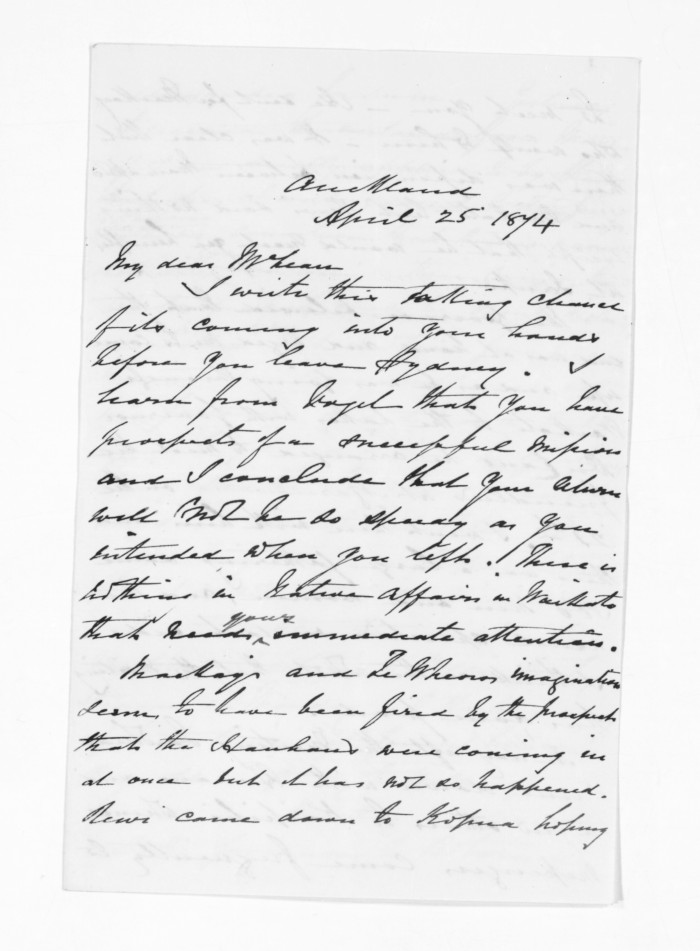 Auckland
April 25 1874
My dear McLean
I write this taking chance
of its coming into your hands
before you leave Sydney. I
learn from Vogel that you have
prospects of a successful mission
and I conclude that your return
will not be so speedy as you
intended when you left. There is
nothing in Native affairs in Waikato
that needs yours immediate attention.
Mackay and Te Wheoros imagination
seems to have been fired by the prospects
that the Hauhaus were coming in
at once but it has not so happened.
Rewi came down to Kopua hoping